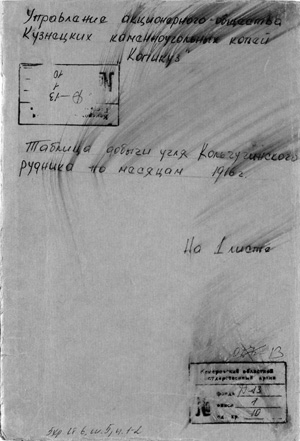 Управление акционерного общества
Кузнецких каменноугольных копей
"Копикуз"
Ф-13
1
10
Таблица добычи угля Кольчугинского
рудника по месяцам 1916 г.
На 1 листе
Кемеровский областной
государственный архив
Фонд Ф-13
опись 1
ед. хр. 10